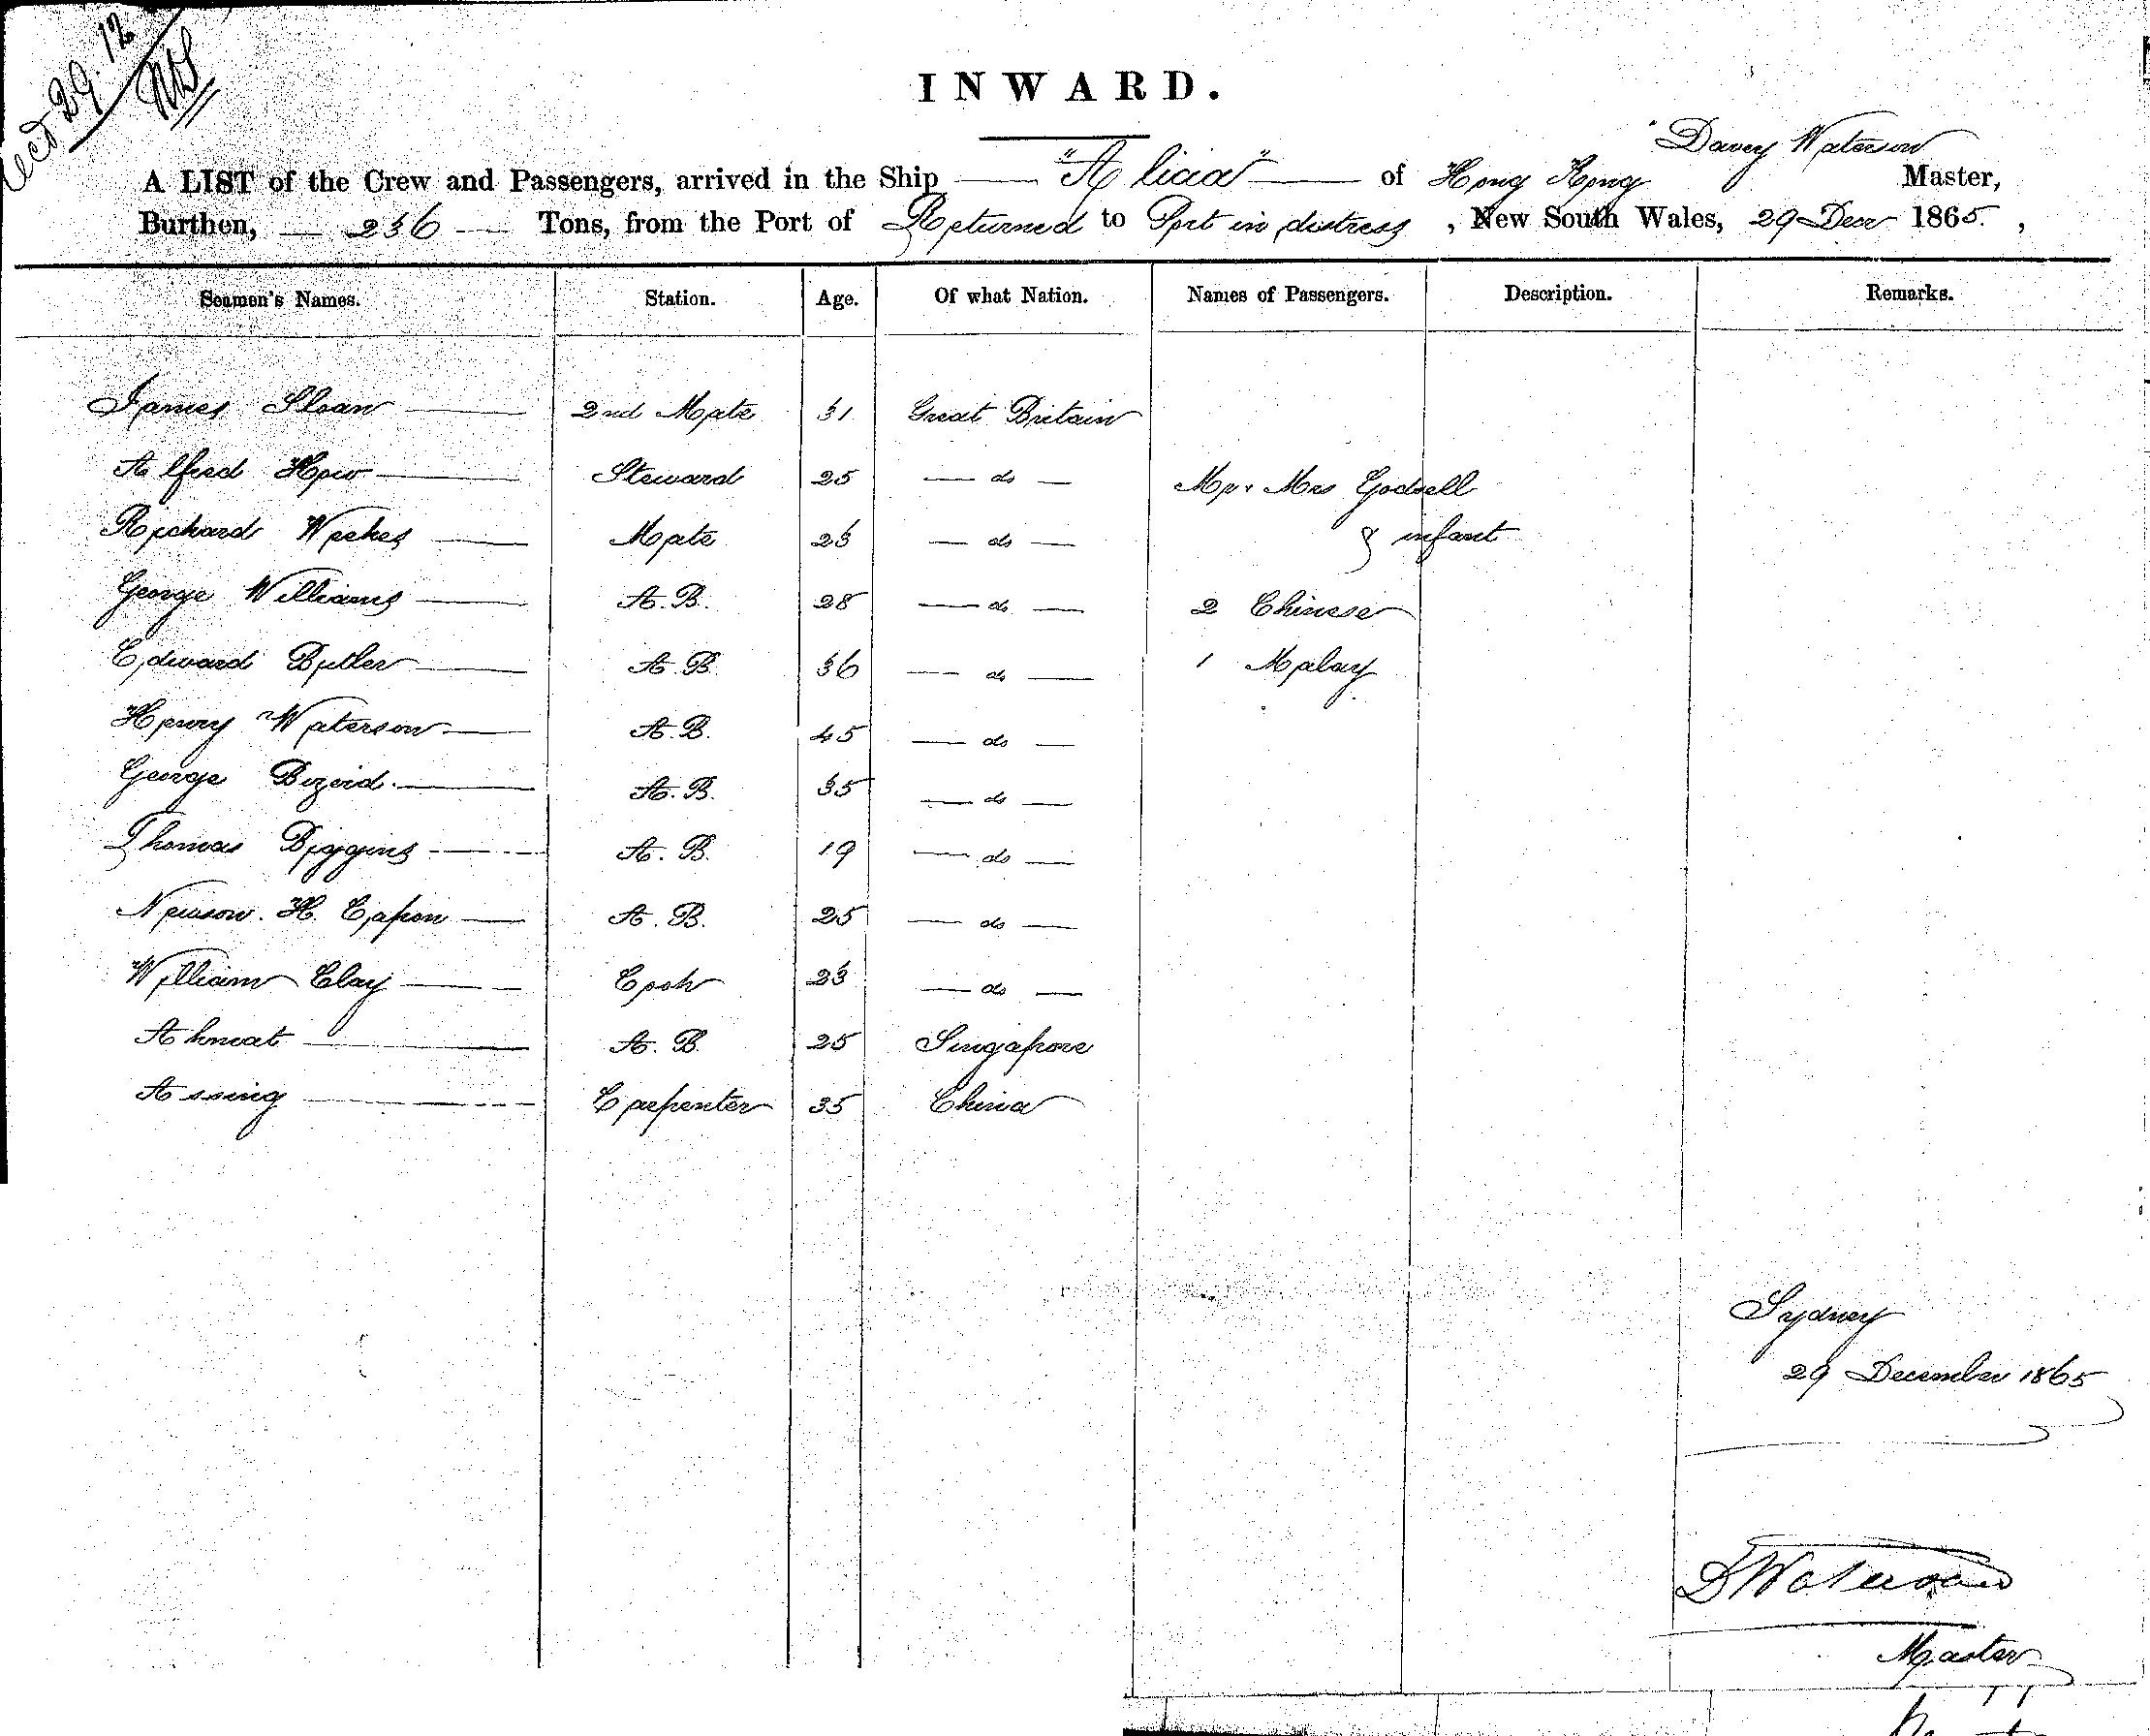 Recd 29.12
INWARD.
Davey Waterson
A LIST of the Crew and Passengers, arrived in the Ship "Alicia" of Hong Kong Master,
Burthen, 236 Tons, from the Port of Returned to Port in distress, New South Wales, 29 Decr 1865,
Seamen's Names. Station. Age. Of what Nation. Names of Passengers. Description. Remarks.
James Sloan 2nd Mate 31 Great Britain
Alfred How Steward 25 do Mr & Mrs Godsell
Richard Weekes Mate 23 do & infant
George Williams A.B. 28 do 2 Chinese
Edward Butler A.B. 36 do 1 Malay
Henry Waterson A.B. 45 do
George A.B. 35 do
Thomas Diggins A.B. 19 do
H. Capon A.B. 25 do
William Clay Cook 23 do
Ahmat A.B. 25 Singapore
Assing Carpenter 35 China
Sydney
29 December 1865
D Waterson
Master